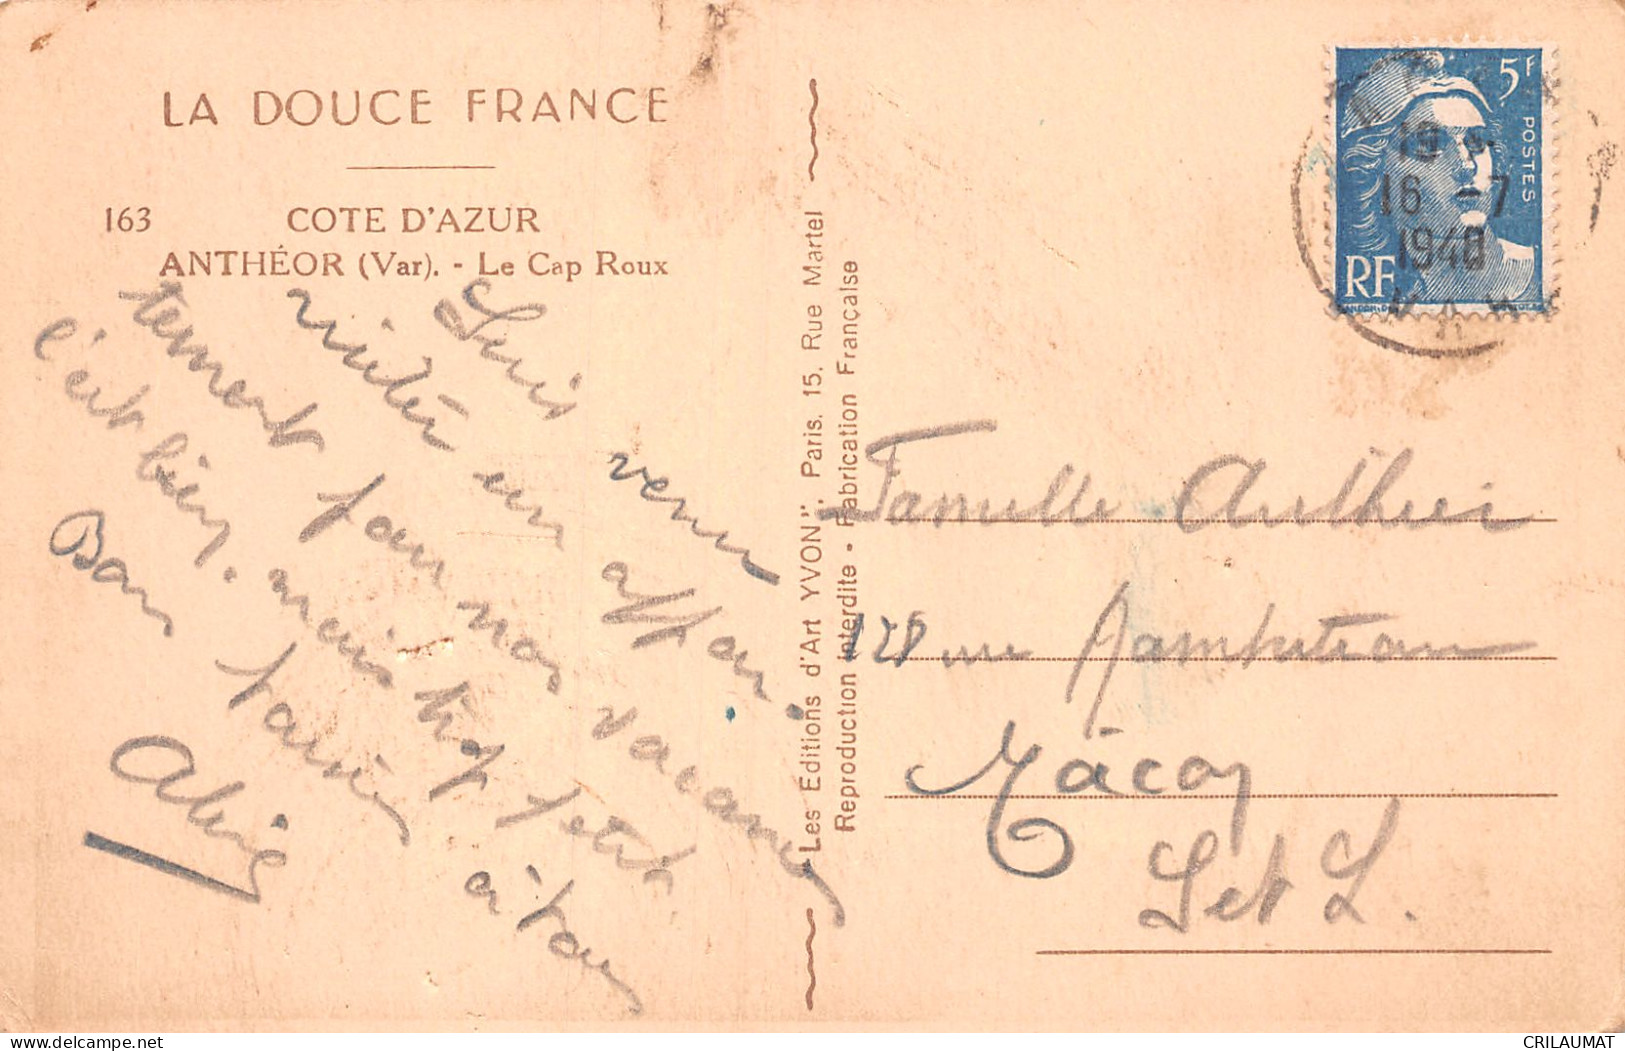 LA DOUCE FRANCE
163 COTE D'AZUR
ANTHÉOR (Var). - Le Cap Roux
Suis venu
visiter un appar
tement pour nos vacances
c'est bien, mais trop petit
Bons baisers à tous
Les Editions d'Art YVON", Paris. 15, Rue Martel
Reproduction interdite - Fabrication Française
5F
POSTES
RF
19 H
16 -7
1948
Famille Authier
128 rue Rambuteau
Mâcon
S et L.
CRILAUMAT